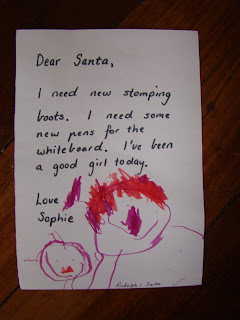 Dear Santa,
I need new stomping
boots. I need some
new pens for the
whiteboard. I've been
a good girl today.
Love
Sophie
Rudolph + Santa